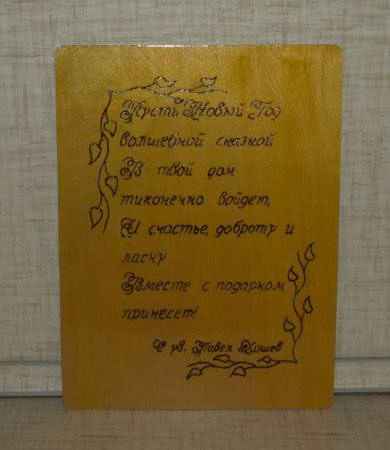 Пусть Новый Год
волшебной сказкой
В твой дом
тихонечко войдет,
И счастье, доброту и
ласку
Вместе с подарком
принесет!
С ув. Павел